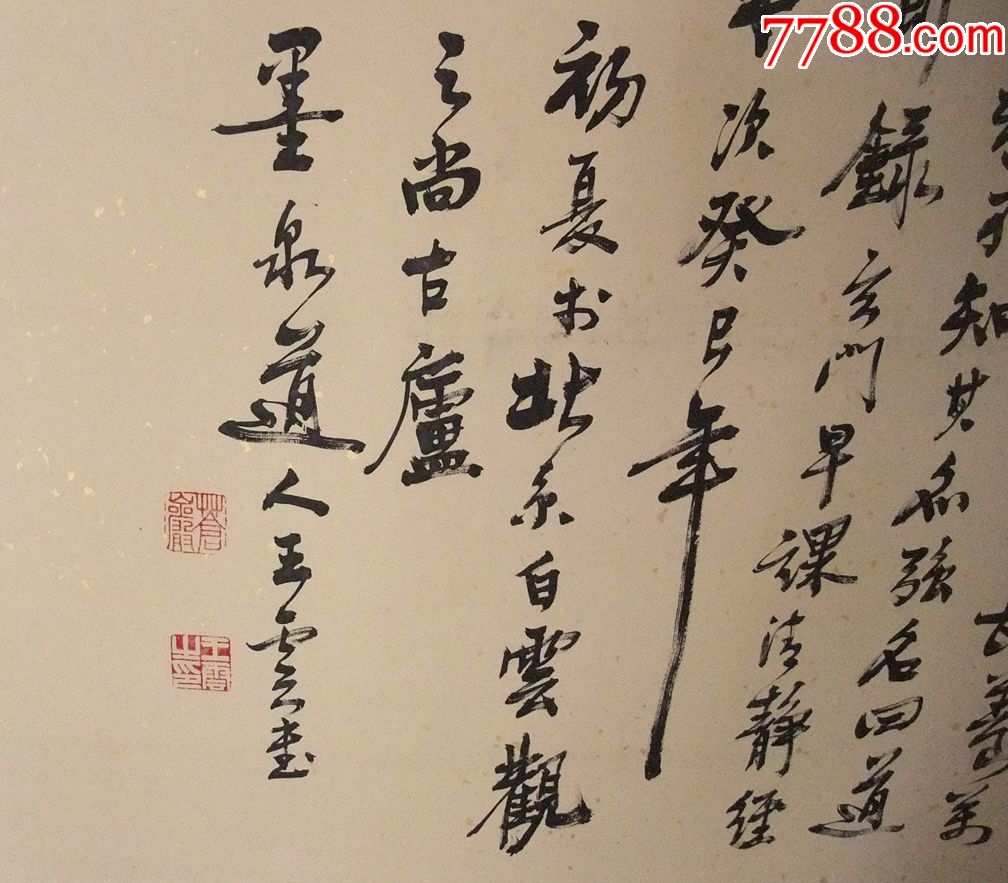 養万
吾不知其名強名曰道
錄玄門早課清靜經
次癸巳年
初夏於北京白雲觀
之尚古廬
墨泉道人王雲書
王雲之印
7788.com